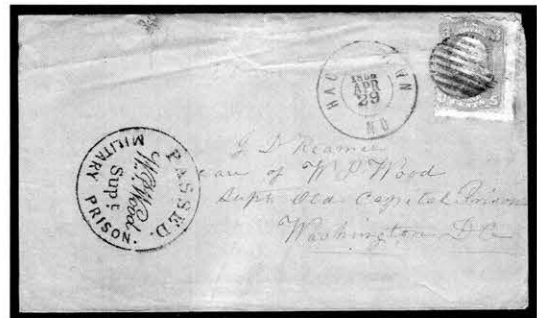 HAG TOWN
1865
APR
29
MD
PASSED.
W.P. Wood
Supt
MILITARY PRISON.
care of W P Wood
Supt Old Capital Prison
Washington D C